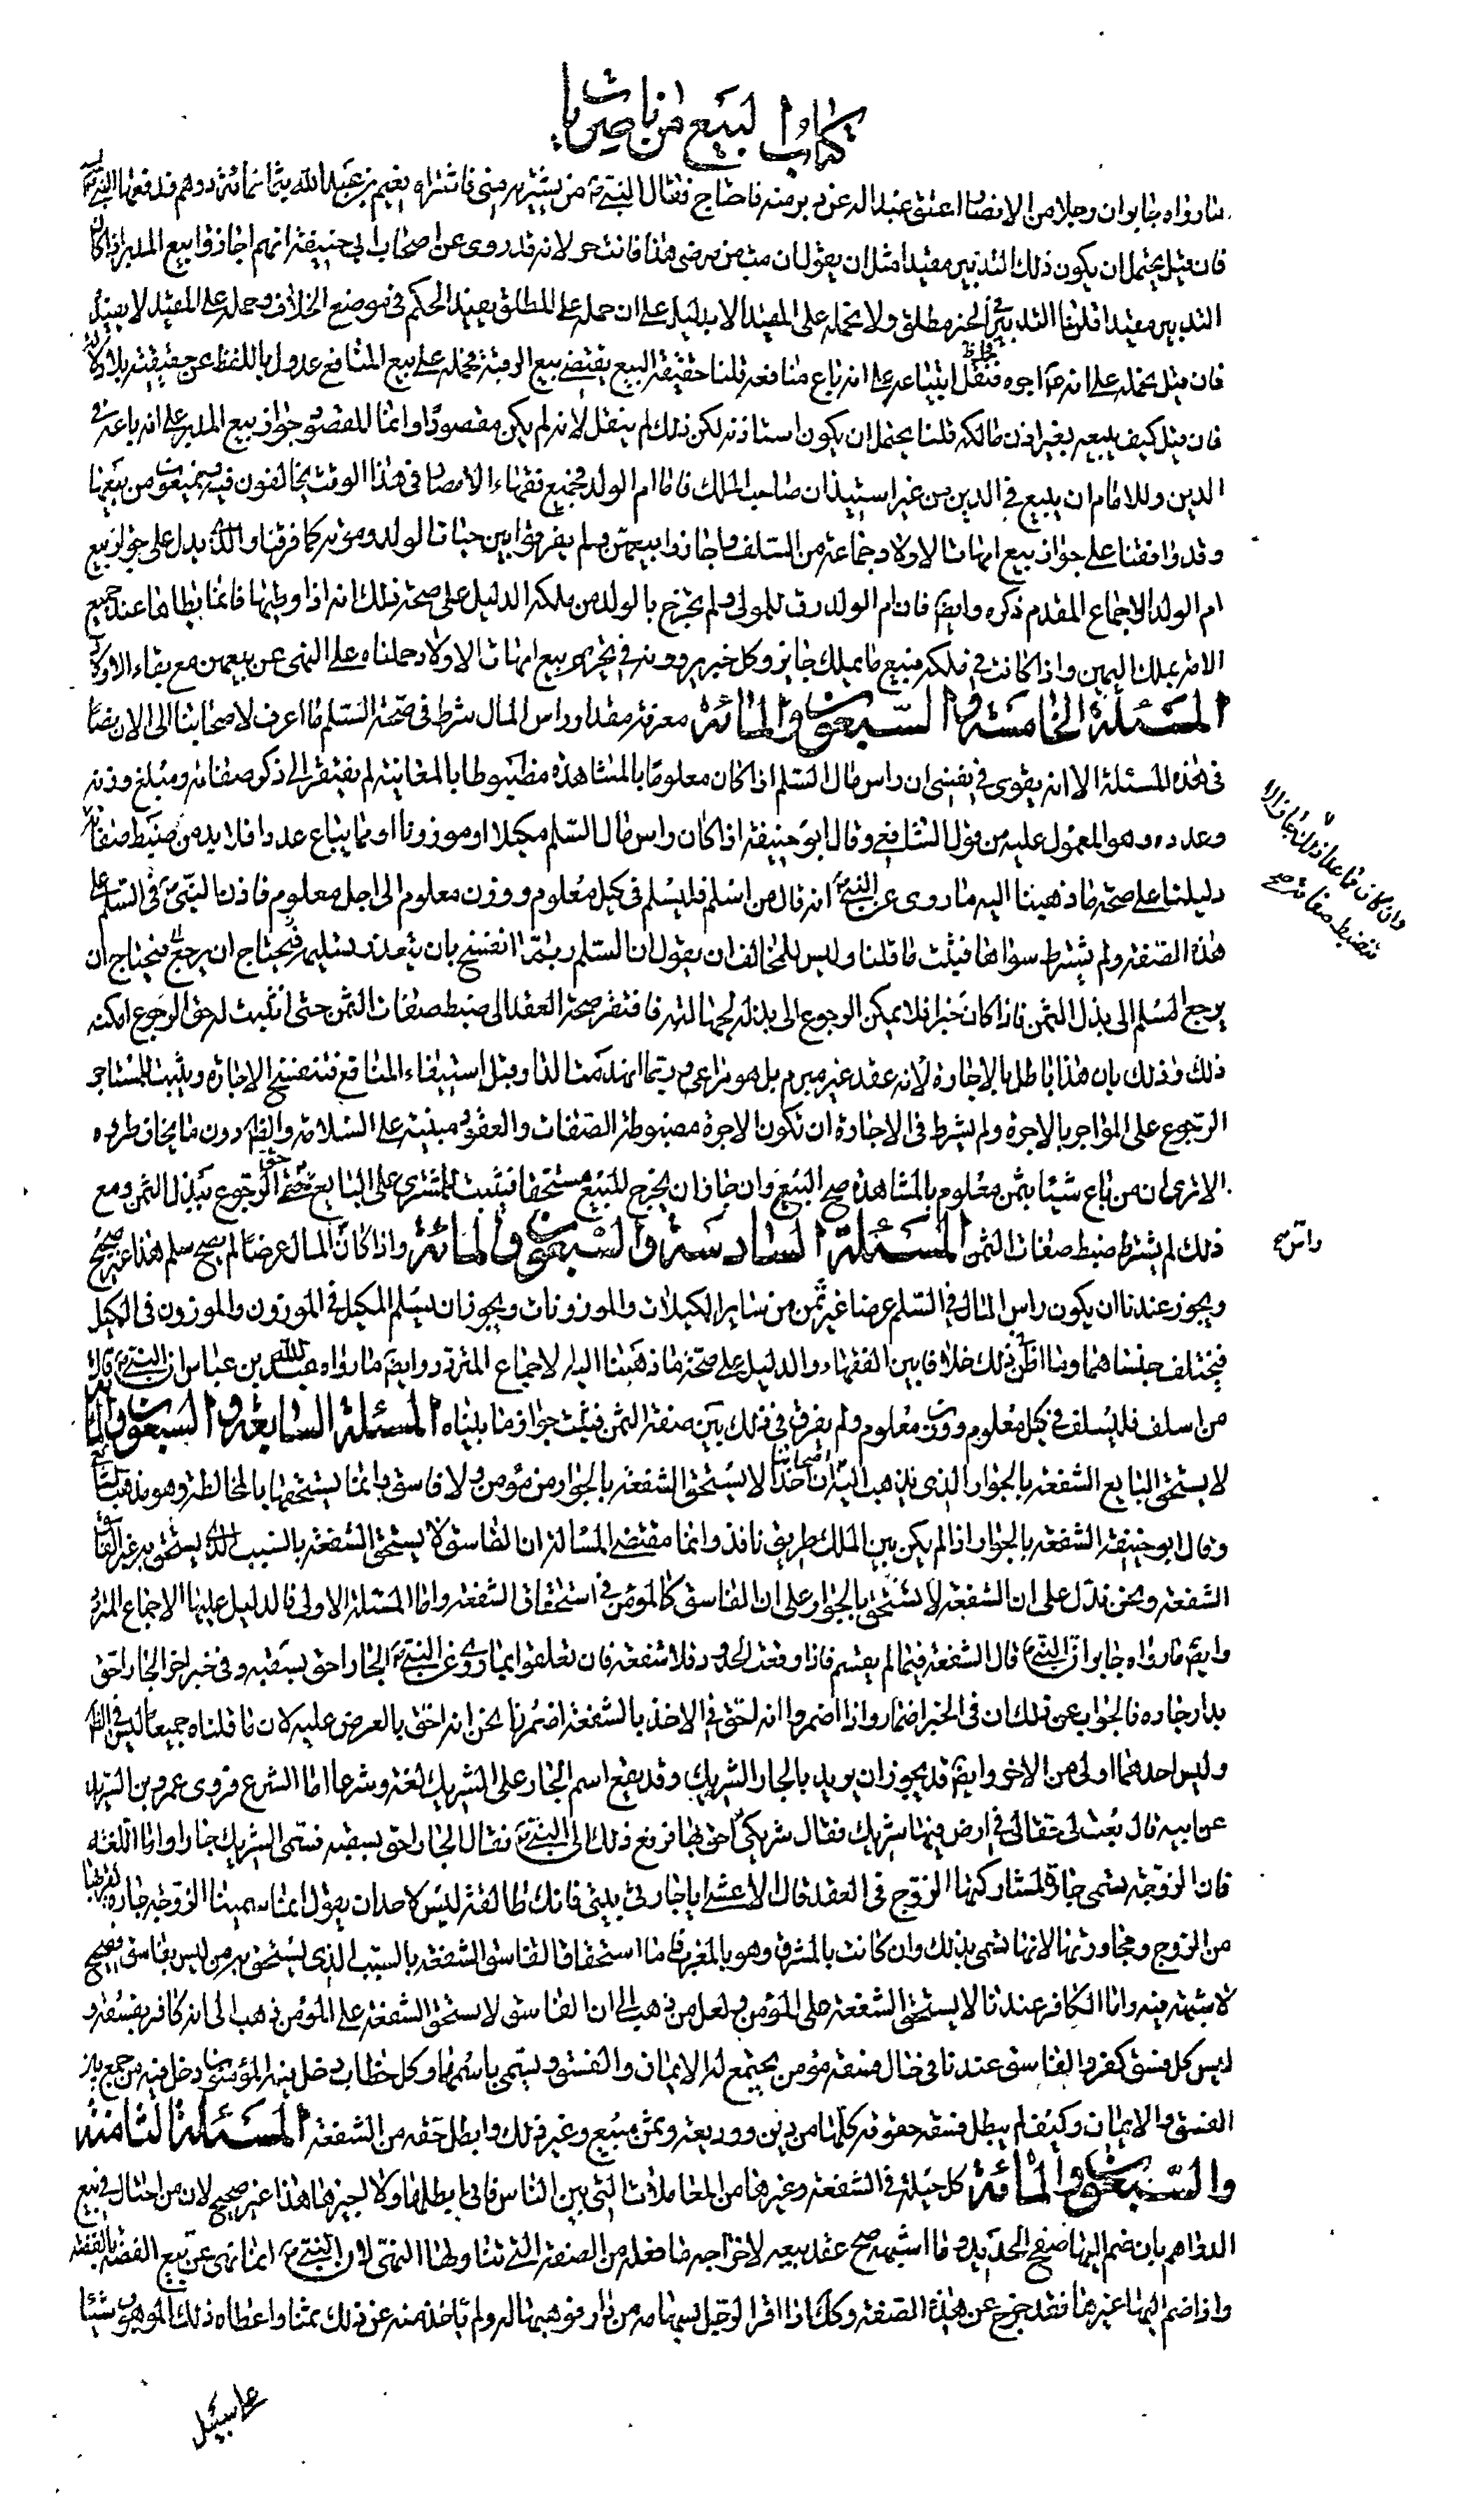 كتاب البيع من ناصريات
ما رواه جابر ان رجلا من الانصار اعتق عبدا له عن دبر منه فاحتاج فقال النبي ص من يشتريه مني فاشتراه نعيم بن عبد الله بثمانمائة درهم فدفعها اليه
فان قيل يحتمل ان يكون ذلك التدبير مقيدا مثل ان يقول ان مت من مرضي هذا فانت حر لانه قد روى عن اصحاب ابي حنيفة انهم اجازوا بيع المدبر اذا كان
التدبير مقيدا قلنا التدبير في الخبر مطلق ولا نحمله على المقيد الا بدليل على ان حمله على المطلق يفيد الحكم في موضع الخلاف وحمله على المقيد لا يفيد
فان قيل نحمله على انه ص آجره فنقل ابتياعه على انه باع منافعه قلنا حقيقة البيع يقتضي بيع الرقبة فحمله على بيع المنافع عدول باللفظ عن حقيقته بلا دلالة
فان قيل كيف يبيعه بغير اذن مالكه قلنا يحتمل ان يكون استاذنه لكن ذلك لم ينقل لانه لم يكن مقصودا وانما المقصود جواز بيع المدبر على انه باعه في
الدين وللامام ان يبيع في الدين من غير استيذان صاحب الملك فاما ام الولد فجميع فقهاء الامصار في هذا الوقت يخالفون فيه ويمنعون من بيعها
وقد وافقنا على جواز بيع امهات الاولاد جماعة من السلف واجازوا بيعهن ولم يفرقوا بين حياة الولد وموته كما فرقنا والذي يدل على جواز بيع
ام الولد الاجماع المقدم ذكره وايضا فان ام الولد رق للمولى ولم يخرج بالولد من ملكه الدليل على صحة ذلك انه اذا وطيها فانما يطاها عند جميع
الامة بملك اليمين واذا كانت في ملكه فبيع ما يملك جايز وكل خبر يروونه في تحريم بيع امهات الاولاد حملناه على النهي عن بيعهن مع بقاء الاولاد
المسئلة الخامسة والسبعون والمائة معرفة مقدار راس المال شرط في صحة السلم ما اعرف لاصحابنا الى الان نصا
في هذه المسئلة الا انه يقوى في نفسي ان راس مال السلم اذا كان معلوما بالمشاهدة مضبوطا بالمعاينة لم يفتقر الى ذكر صفاته ومبلغ وزنه
وعدده وهو المعمول عليه من قول الشافعي وقال ابو حنيفة اذا كان راس مال السلم مكيلا او موزونا او مما يباع عددا فلا بد من ضبط صفاته
دليلنا على صحة ما ذهبنا اليه ما روى عن النبي ص انه قال من اسلم فليسلم في كيل معلوم ووزن معلوم الى اجل معلوم فاذن النبي ص في السلم على
هذه الصفة ولم يشترط سواها فيثبت ما قلنا وليس للمخالف ان يقول ان السلم ربما انفسخ بان يتعذر تسليمه فيحتاج ان يرجع فيحتاج ان
يرجع المسلم الى بذل الثمن فاذا كان جزافا فلا يمكن الرجوع الى بدله لجهالته فافتقر صحة العقد الى ضبط صفات الثمن حتى اذا ثبت له حق الرجوع امكنه
ذلك وذلك بان هذا باطل بالاجارة لانه عقد غير مبرم بل هو مراعى وربما انهدمت الدار قبل استيفاء المنافع فتنفسخ الاجارة ويثبت للمستاجر
الرجوع على المواجر بالاجرة ولم يشرط في الاجارة ان تكون الاجرة مضبوطة الصفات والعقود مبنية على السلامة والظاهر دون ما يخاف طروه
الا ترى ان من باع شيئا بثمن معلوم بالمشاهدة صح البيع وان جاز ان يخرج المبيع مستحقا فيثبت للمشترى على البايع حق الرجوع ببدل الثمن ومع
ذلك لم يشترط ضبط صفات الثمن المسئلة السادسة والسبعون والمائة واذا كان المال عرضا لم يصح سلم هذا غير صحيح
راس صح
ويجوز عندنا ان يكون راس المال في السلم عرضا غير ثمن من ساير المكيلات والموزونات ويجوز ان يسلم المكيل في الموزون والموزون في المكيل
فيختلف جنساهما وما اظن في ذلك خلافا بين الفقهاء والدليل على صحة ما ذهبنا اليه الاجماع المتردد وايضا ما رواه عبد الله بن عباس ان النبي ص قال
من اسلف فليسلف في كيل معلوم ووزن معلوم ولم يفرق في ذلك بين صفة الثمن فيثبت جواز ما بيناه المسئلة السابعة والسبعون والمائة
لا يستحق البايع الشفعة بالجوار الذي يذهب اليه اصحابنا ان احدا لا يستحق الشفعة بالجوار من مؤمن ولا فاسق وانما يستحقها بالمخالطة وهو مذهب الشافعي
وقال ابو حنيفة الشفعة بالجوار اذا لم يكن بين الملك طريق نافذ وانما مقتضى المسالة ان الفاسق لا يستحق الشفعة بالسبب الذي يستحق به غير الفاسق
الشفعة ونحن ندل على ان الشفعة لا تستحق بالجوار وعلى ان الفاسق كالمؤمن في استحقاق الشفعة واما المسئلة الاولى فالدليل عليها الاجماع المتردد
وايضا ما رواه جابر ان النبي ص قال الشفعة فيما لم يقسم فاذا وقعت الحدود فلا شفعة فان تعلقوا بما روى عن النبي ص الجار احق بسقبه وفي خبر اخر الجار احق
بدار جاره فالجواب عن ذلك ان في الخبر اضمار واذا اضمروا انه احق في الاخذ بالشفعة اضمرنا نحن انه احق بالعرض عليه لان ما قلناه جميعا ليس في الظاهر
وليس احدهما اولى من الاخر وايضا قد يجوز ان يريد بالجار الشريك وقد يقع اسم الجار على الشريك لغة وشرعا اما الشرع فروى عمرو بن الشريد
عن ابيه قال بعت لي حقا لي في ارض فيها شريك فقال شريكي احق بها فرفع ذلك الى النبي ص فقال الجار احق بسقبه فسمى الشريك جارا واما اللغة
فان الزوجة تسمى جارة لمشاركتها الزوج في العقد قال الاعشى ايا جارتي بيني فانك طالقة ليس لاحد ان يقول انما سمينا الزوجة جارة لقربها
من الزوج ومجاورتها لانها تسمى بذلك وان كانت بالمشرق وهو بالمغرب فاما استحقاق الفاسق الشفعة بالسبب الذي يستحق به من ليس بفاسق فصحيح
لا شبهة فيه واما الكافر عندنا لا يستحق الشفعة على المؤمن ولعل من ذهب الى ان الفاسق لا يستحق الشفعة على المؤمن ذهب الى انه كافر بفسقه و
ليس كل فسق كفر والفاسق عندنا في حال فسقه مؤمن يجتمع له الايمان والفسق ويسمى باسمهما وكل خطاب دخل فيه المؤمنون دخل فيه من جمع بين
الفسق والايمان وكيف لم يبطل فسقه حقوقه كلها من دين ووديعة وثمن مبيع وغير ذلك وابطل حقه من الشفعة المسئلة الثامنة
والسبعون والمائة كل حيلة في الشفعة وغيرها من المعاملات التي بين الناس فاني ابطلها ولا اجيزها هذا غير صحيح لان من احتال في بيع
الدراهم بان ضم اليها صفح الحديد وما اشبهه صح عقد بيعه لاخراجه ما فعله من الصفة التي تناولها النهي لان النبي ص انما نهى عن بيع الفضة بالفضة
واذا ضم اليها غيرها فقد خرج عن هذه الصفة وكذلك اذا اقر لرجل بسهامه من دار فوهبها له ولم ياخذ منه عن ذلك ثمنا واعطاه ذلك الموهوب شيئا
على سبيل